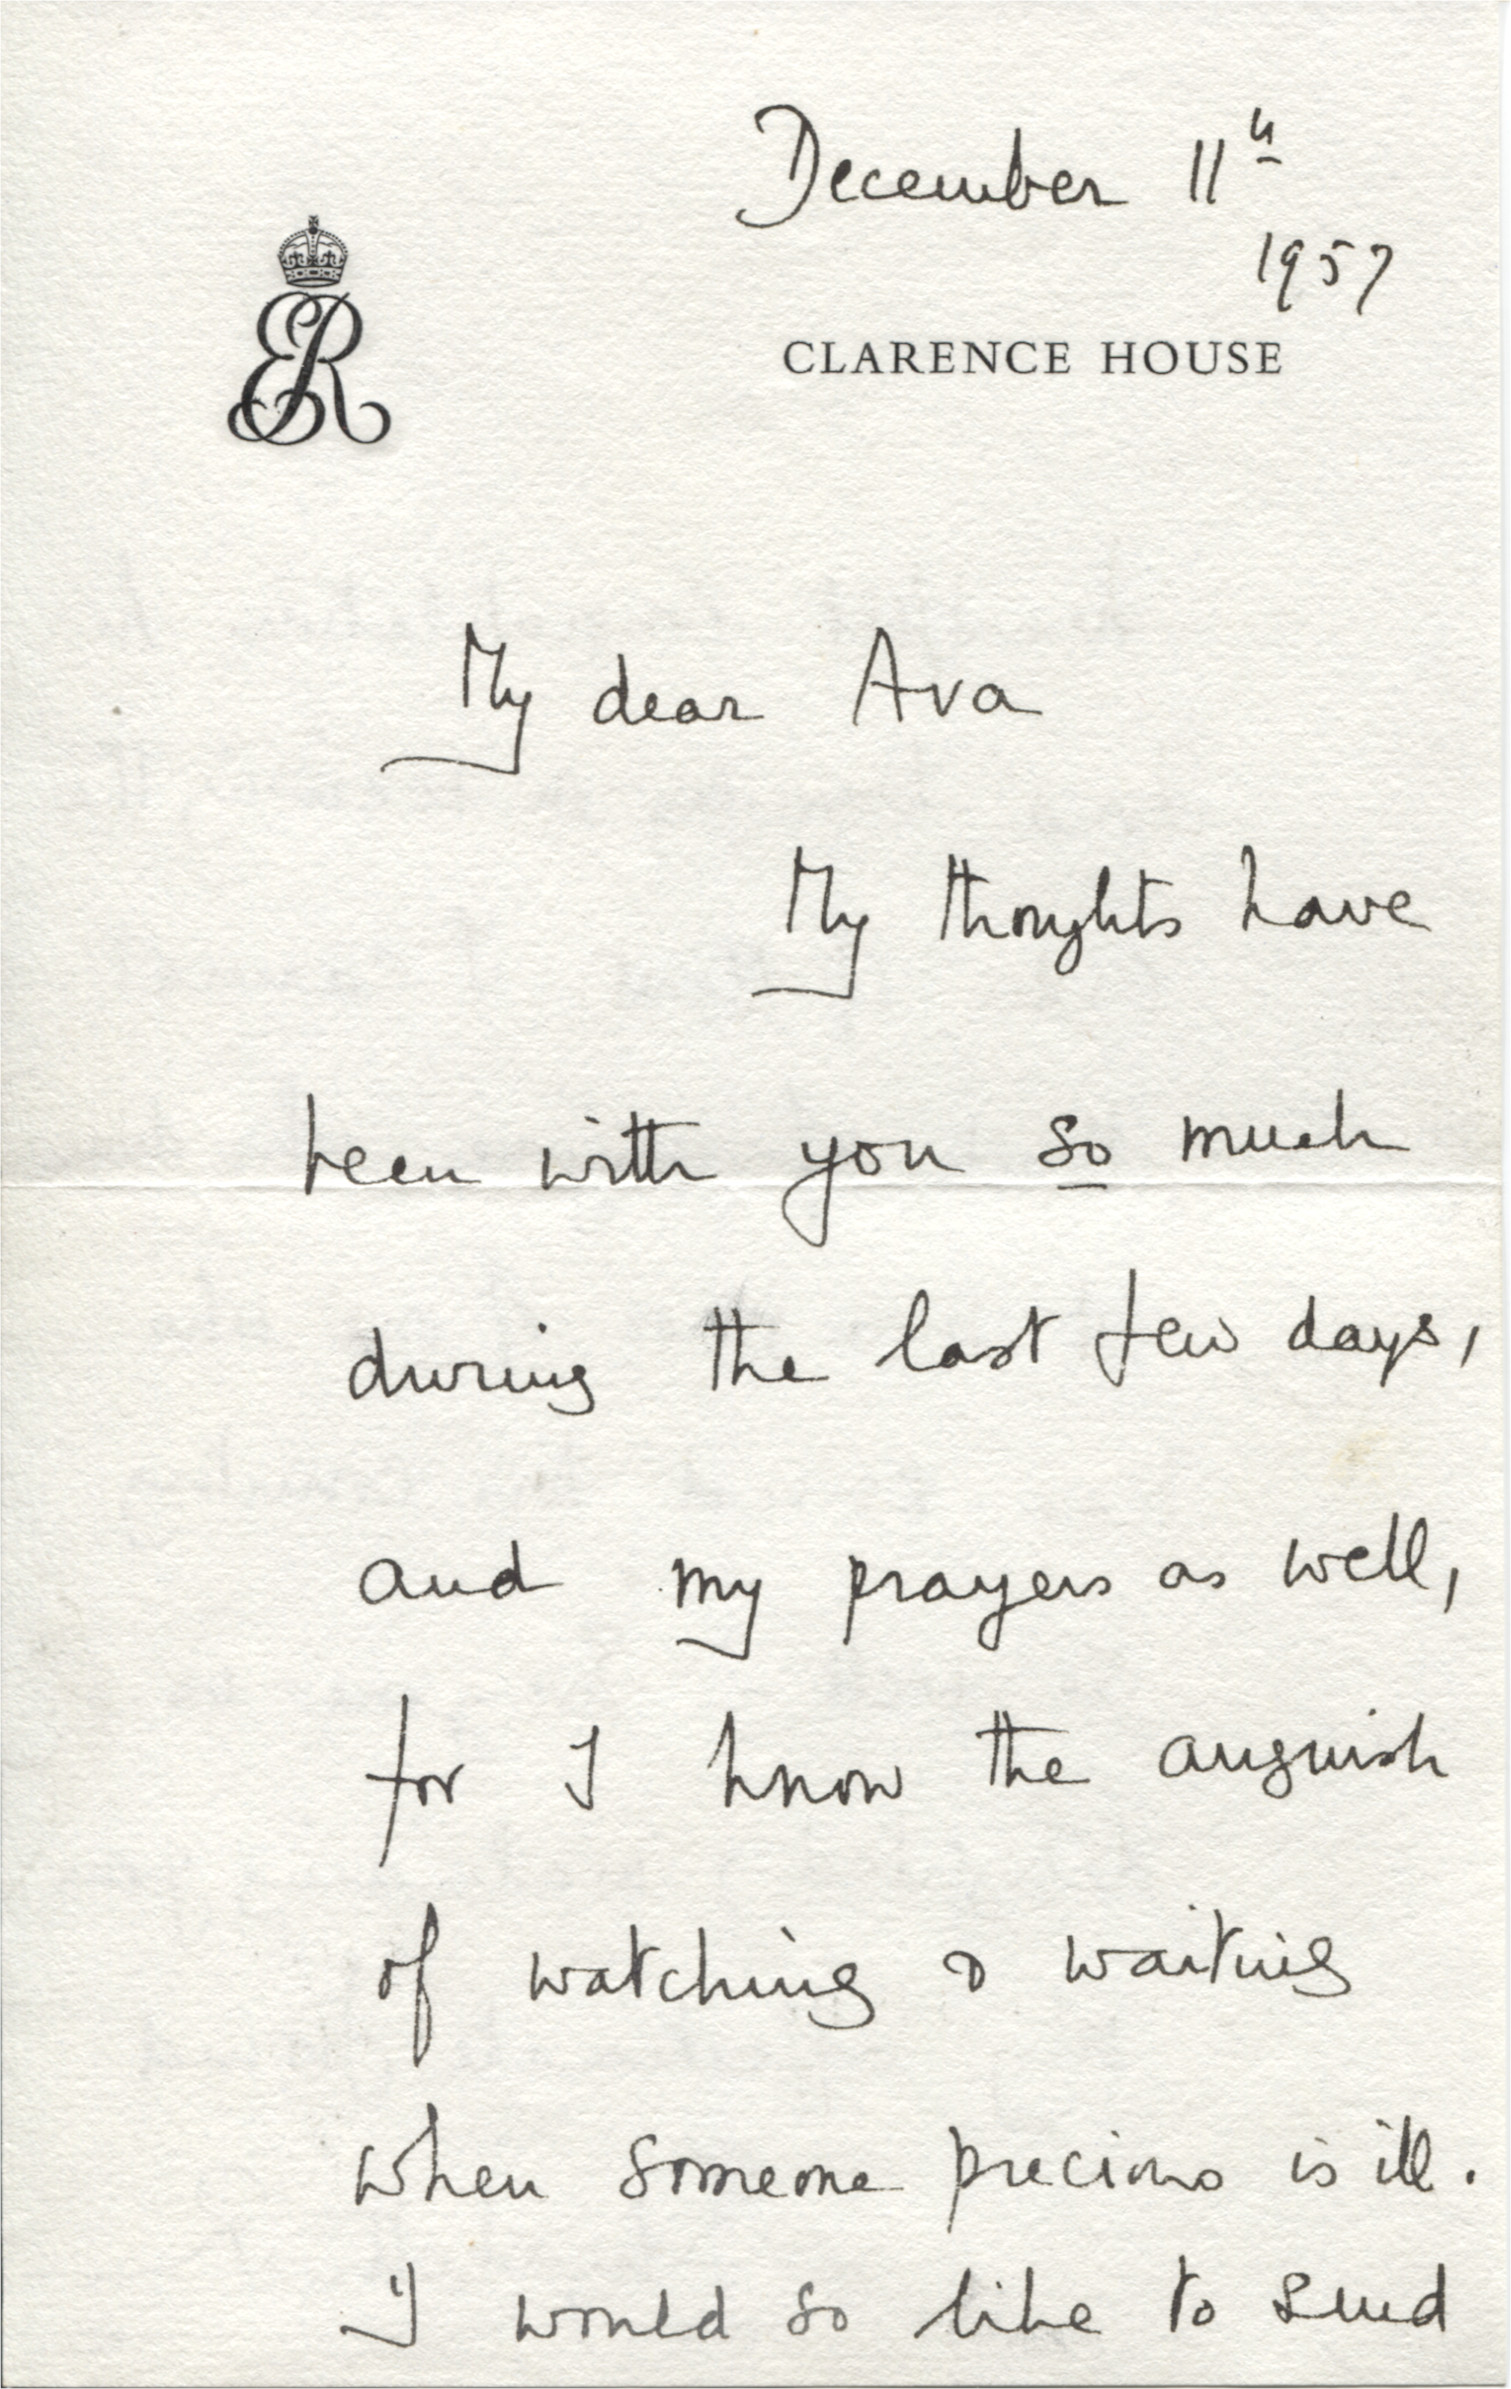 December 11th
1957
ER
CLARENCE HOUSE
My dear Ava
My thoughts have
been with you so much
during the last few days,
and my prayers as well,
for I know the anguish
of watching & waiting
when someone precious is ill.
I would so like to send